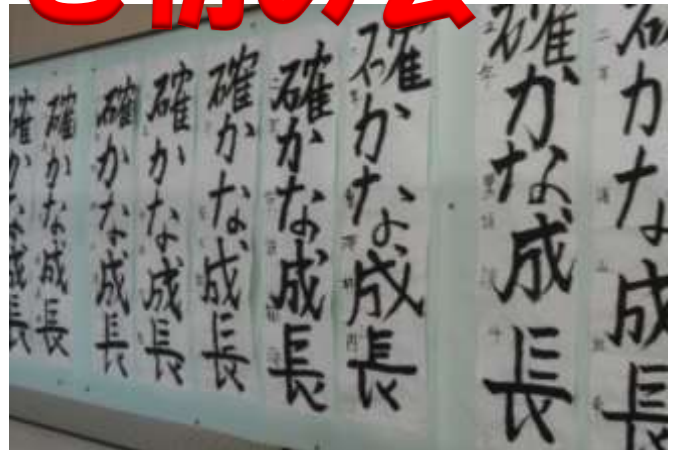 き初め会
確かな成長
確かな成長
確かな成長
確かな成長
確かな成長
確かな成長
確かな成長
確かな成長
確かな成長